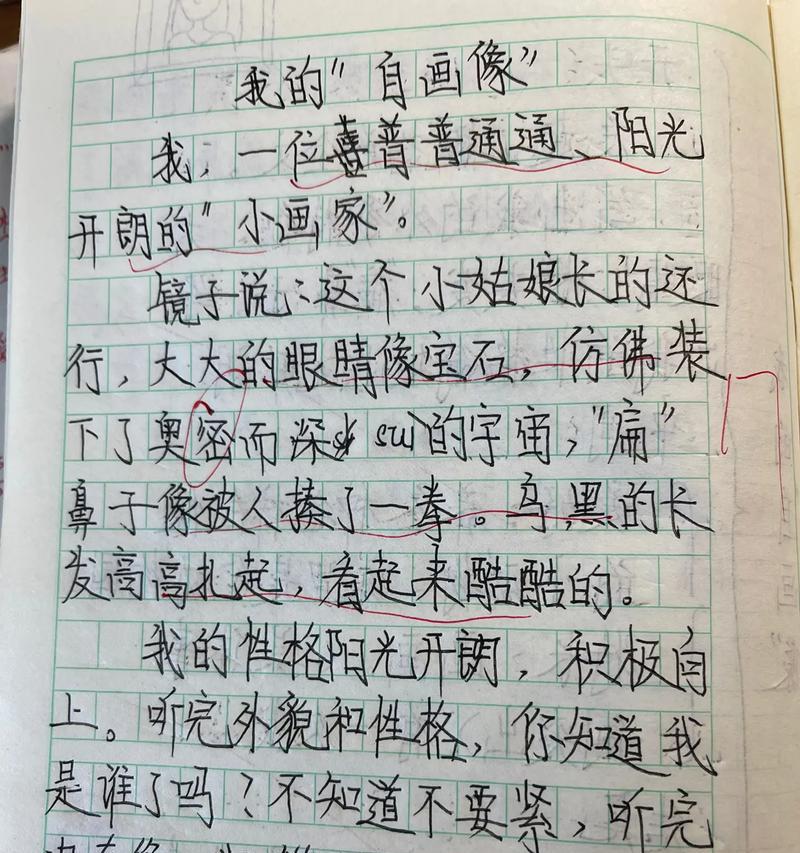 我的“自画像”
我，一位普普通通、阳光
开朗的“小画家”。
镜子说：这个小姑娘长的还
行，大大的眼睛像宝石，仿佛装
下了奥密而深sui的宇宙，“扁”
鼻子像被人揍了一拳。乌黑的长
发高高扎起，看起来酷酷的。
我的性格阳光开朗，积极自
上。听完外貌和性格，你知道我
是谁了吗？不知道不要紧，听完